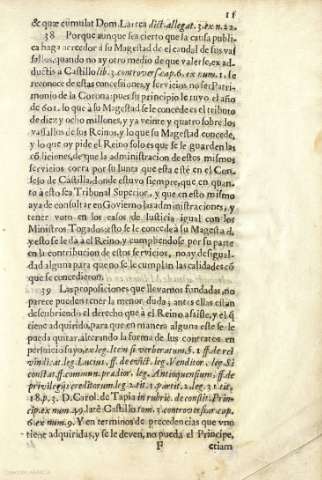 15
& quæ cumulat Dom. Larrea dict. allegat. 3. ex n. 22.
38 Porque aunque sea cierto que la causa publi
ca haga acreedor à su Magestad de el caudal de sus vas
sallos, quando no ay otro medio de que valerse, ex ad-
ductis à Castillo lib. 3. controvers. cap. 6. ex num. 1. se
reconoce de estas concessiones, y servicios no ser Patri-
monio de la Corona: pues su principio le tuvo el año
de 601. lo que à su Magestad se le concede es el tributo
de diez y ocho millones, y a veinte y quatro sobre los
vassallos de los Reinos, y lo que su Magestad concede,
y lo que oy pide el Reino solo es que se le guarden las
cõdiciones, de que la administracion de estos mismos
servicios corra por su Iunta que esta esté en el Con-
sejo de Castilla, donde estuvo siempre, que en quan-
to à esto sea Tribunal Superior, y que en esto mismo
aya de consultar en Govierno las administraciones, y
tener voto en los casos de Iusticia igual con los
Ministros Togados: esto se le concede à su Magestad,
y esto se le dà al Reino, y cumpliendose por su parte
en la contribucion de estos servicios, no ay desigual-
dad alguna para que no se le cumplan las calidades cõ
que se concedieron.
39 Las proposiciones que llevamos fundadas, no
parece pueden tener la menor duda; antes ellas estàn
descubriendo el derecho que à el Reino assiste, y el q̃
tiene adquirido, para que en manera alguna este se le
pueda quitar, alterando la forma de sus contratos en
perjuicio suyo, ex leg. Item si verberatum, §. 1. ff. de rei
vindicat. leg. Lucius, ff. de evict. leg. Venditor, leg. Si
constat, ff. commun. prædior. leg. Antiochensium, ff. de
privilegijs creditorum leg. 2. tit. 1. partit. 2. leg. 31. tit.
18. p. 3. D. Carol. de Tapia in rubric. de constit. Prin-
cip. ex num. 49. latè Castillo tom. 5. controversia cap.
6. ex num. 9. Y en terminos de precedencias que vno
tiene adquiridas, y se le deven, no pueda el Principe,
F etiam